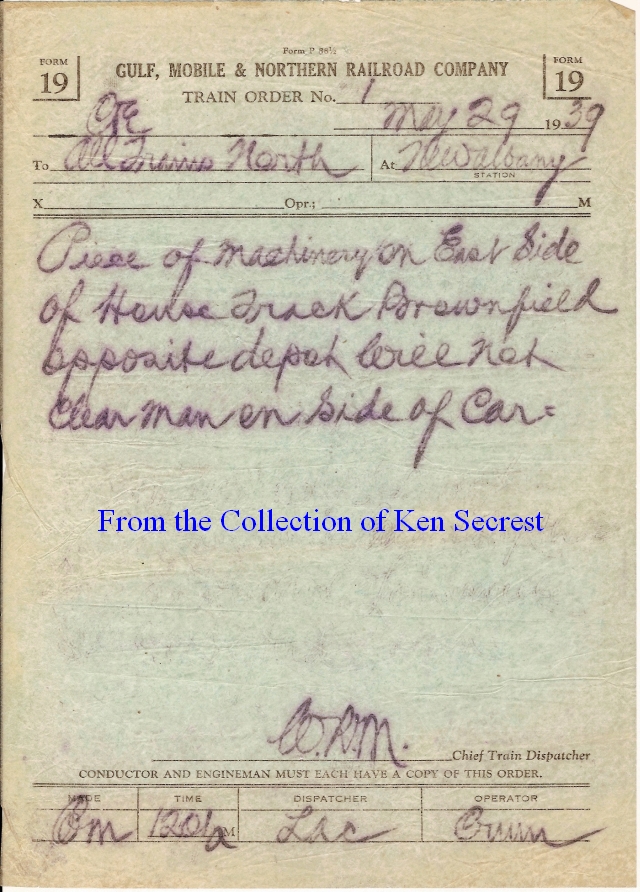 Form P 88½
FORM 19
GULF, MOBILE & NORTHERN RAILROAD COMPANY
FORM 19
TRAIN ORDER No. 1
May 29 1939
To All Trains North At Newalbany
STATION
X Opr.; M
Piece of machinery on East Side
of House Track Brownfield
opposite depot Will Not
Clear Man on Side of Car=
From the Collection of Ken Secrest
W.R.M.
Chief Train Dispatcher
CONDUCTOR AND ENGINEMAN MUST EACH HAVE A COPY OF THIS ORDER.
MADE TIME DISPATCHER OPERATOR
Om 1201a M Lac